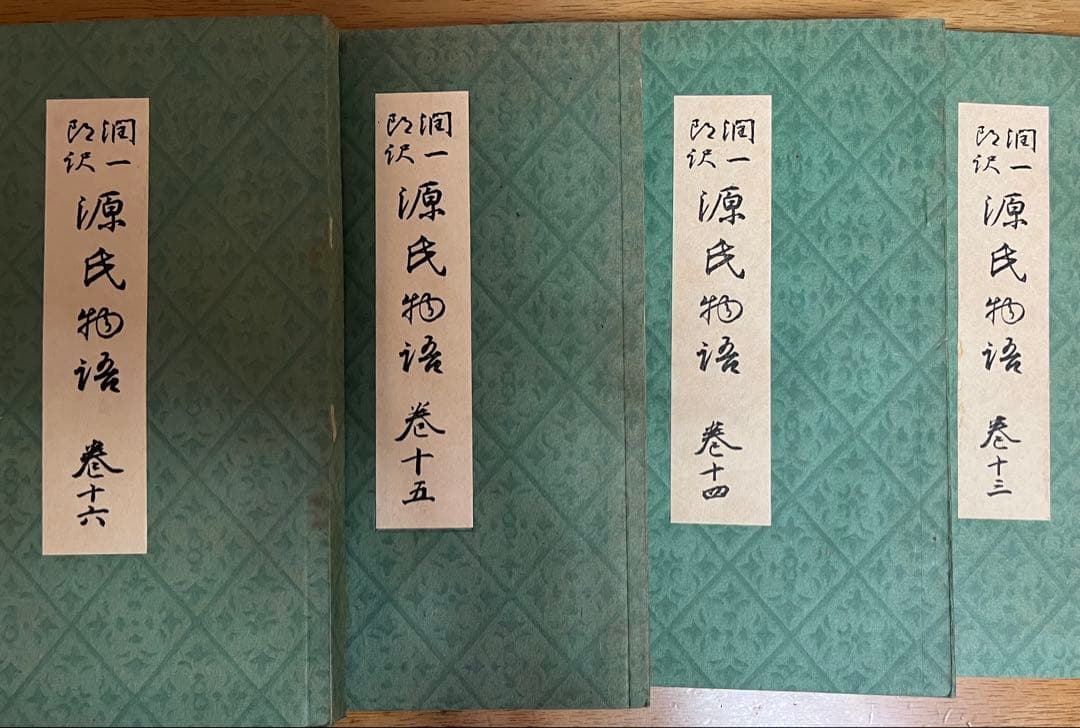 潤一
郎訳
源氏物語 巻十三
潤一
郎訳
源氏物語 巻十四
潤一
郎訳
源氏物語 巻十五
潤一
郎訳
源氏物語 巻十六